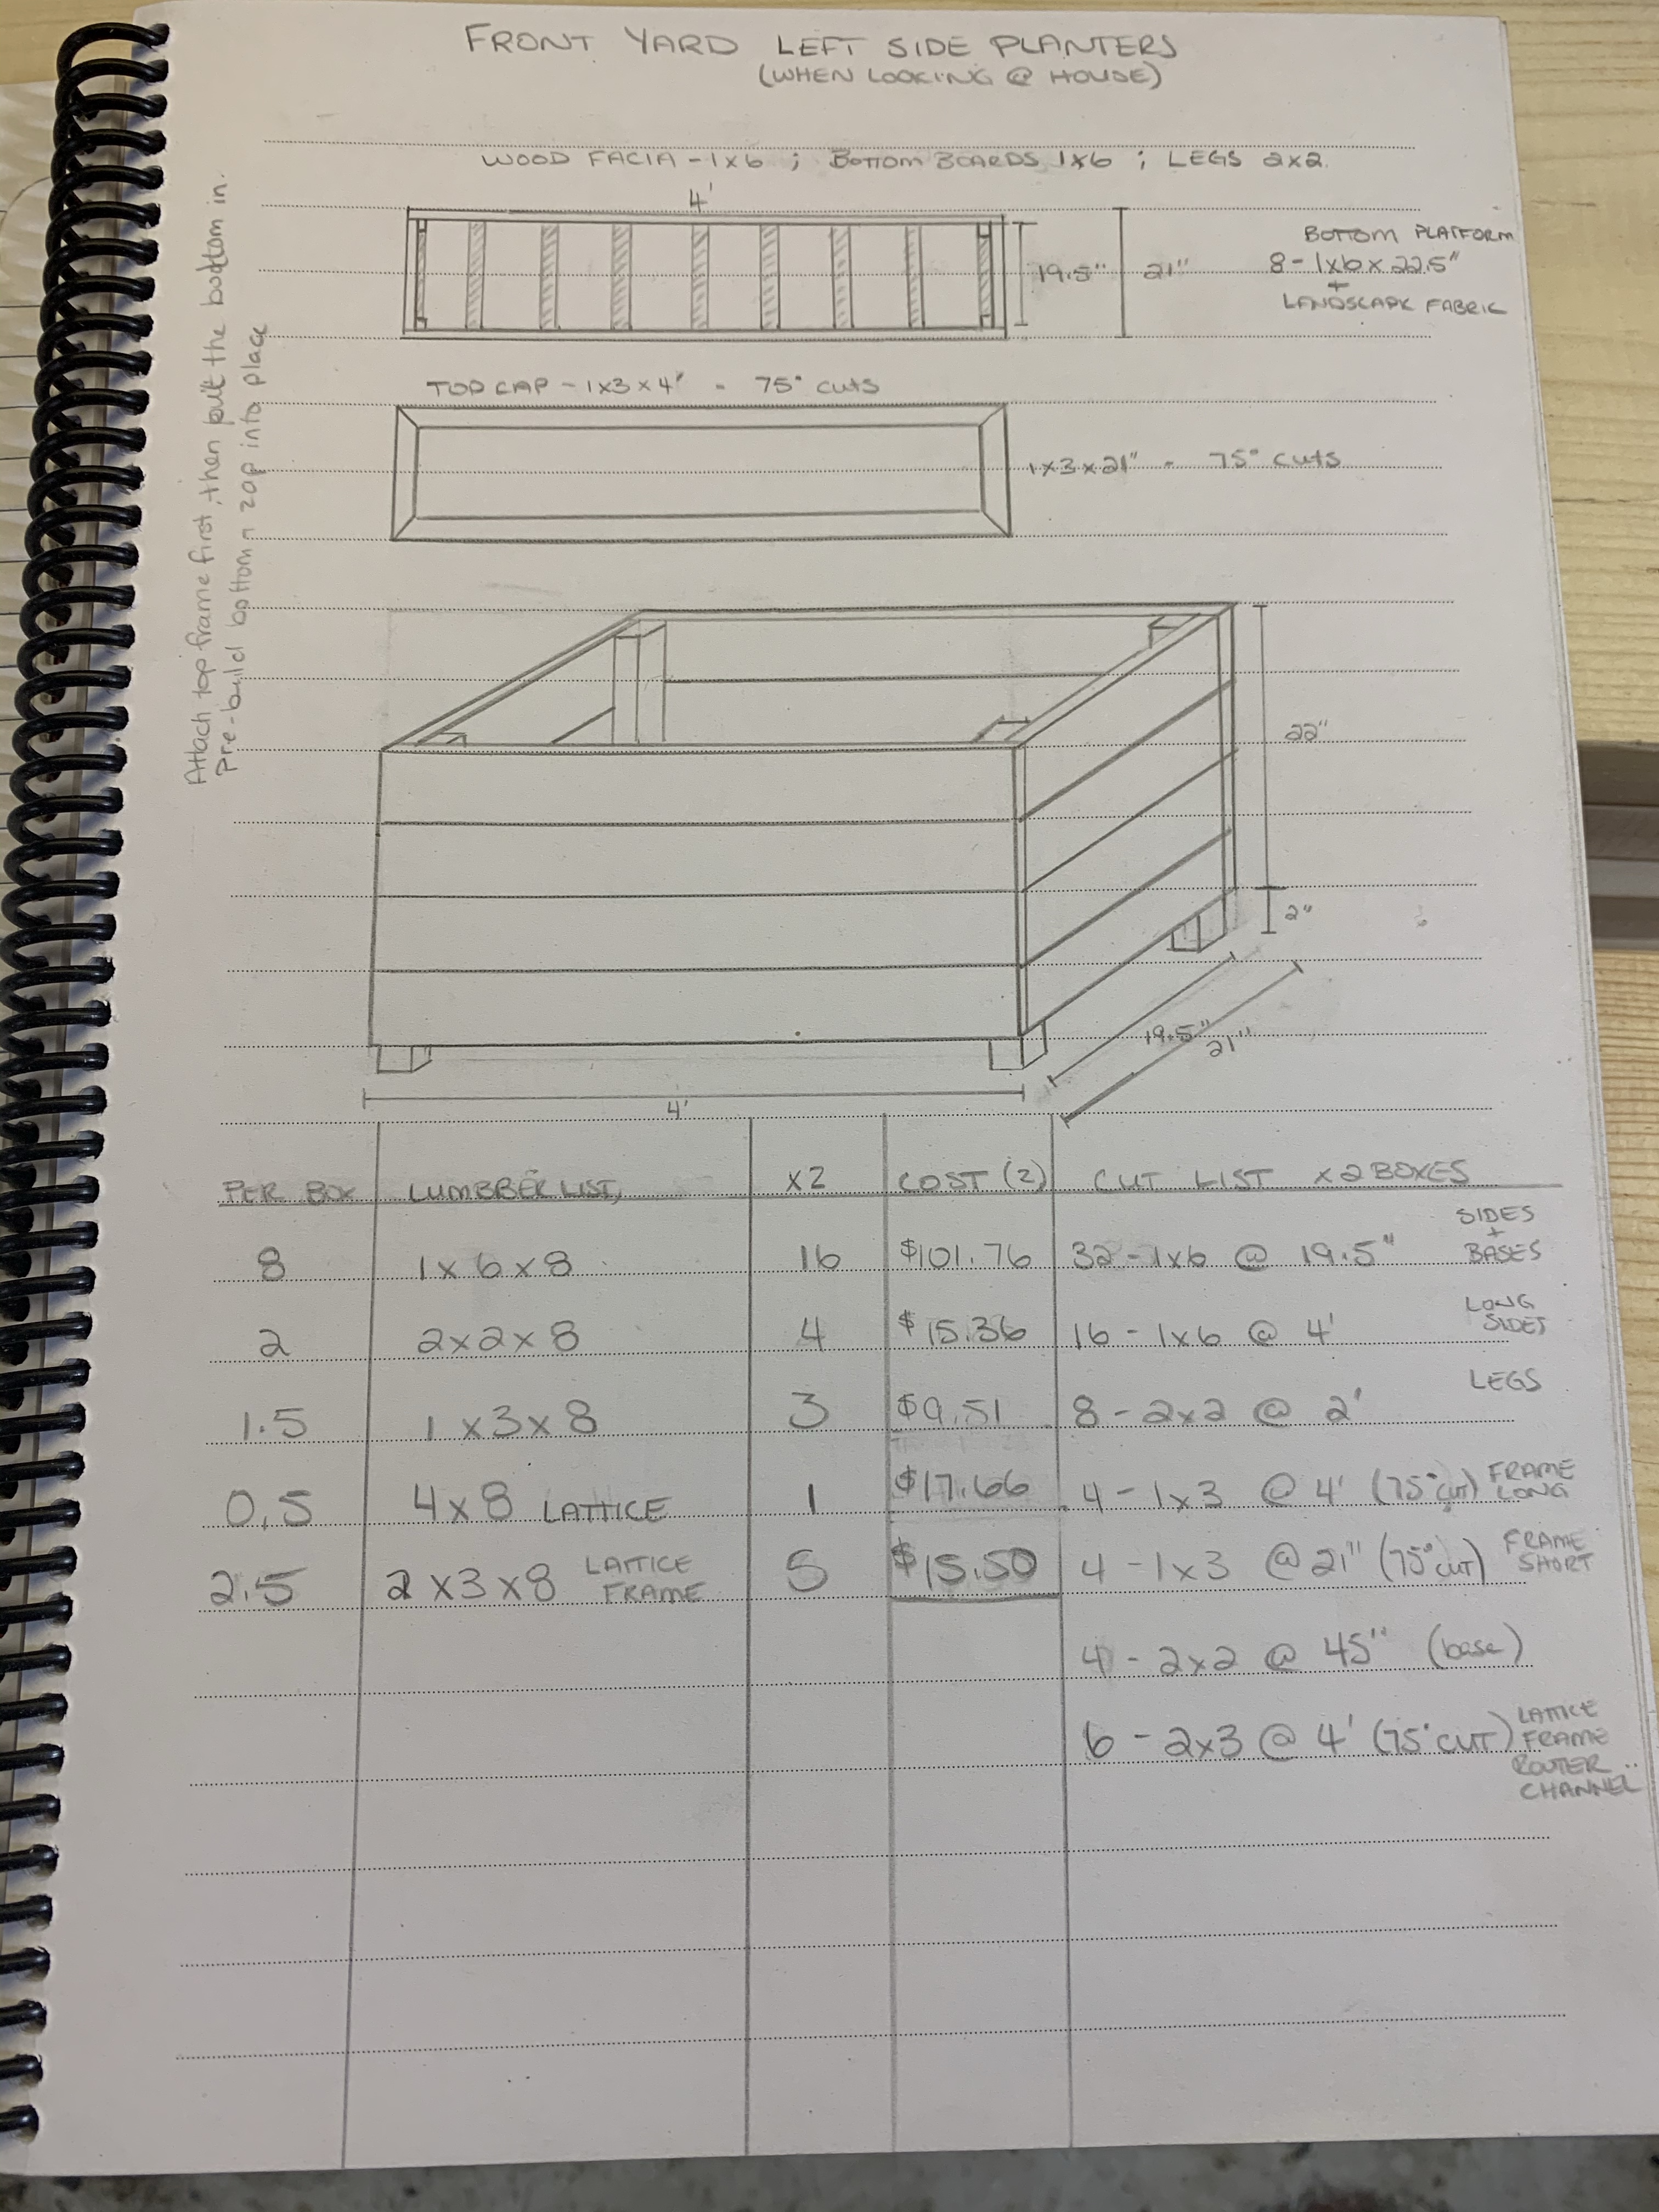 FRONT YARD LEFT SIDE PLANTERS
(WHEN LOOKING @ HOUSE)
WOOD FACIA - 1x6 ; BOTTOM BOARDS 1x6 ; LEGS 2x2
4'
19.5" 21"
BOTTOM PLATFORM
8 - 1x6 x 22.5"
+
LANDSCAPE FABRIC
Attach top frame first, then put the bottom in.
Pre-build bottom into place
TOP CAP - 1x3x4' - 75° CUTS
1x3x21" - 75° CUTS
22"
2"
19.5"
21"
4'
PER BOX LUMBBER LIST, x2 COST (2) CUT LIST x2 BOXES
8 1x6x8 16 $101.76 32 - 1x6 @ 19.5" SIDES + BASES
2 2x2x8 4 $15.36 16 - 1x6 @ 4' LONG SIDES
1.5 1x3x8 3 $9.51 8 - 2x2 @ 2' LEGS
0.5 4x8 LATTICE 1 $17.66 4 - 1x3 @ 4' (75° CUT) FRAME LONG
2.5 2x3x8 LATTICE FRAME 5 $15.50 4 - 1x3 @ 21" (75° CUT) FRAME SHORT
4 - 2x2 @ 45" (base)
6 - 2x3 @ 4' (75° CUT) LATTICE FRAME ROUTER CHANNEL